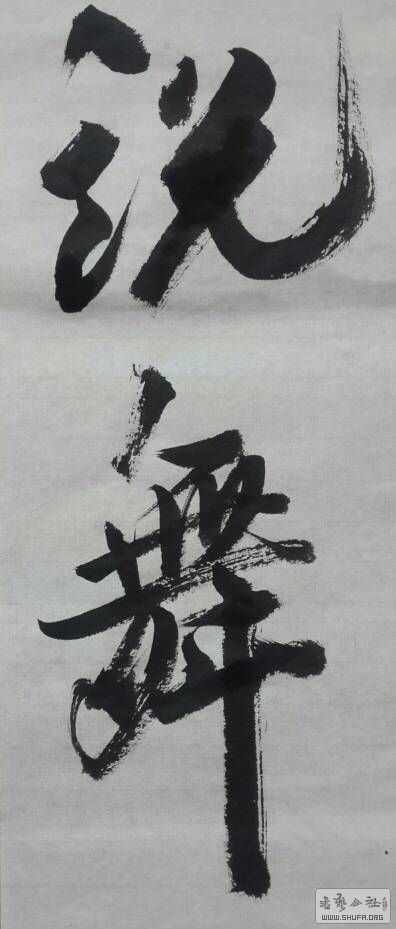 説
舞
書艺公社
WWW.SHUFA.ORG